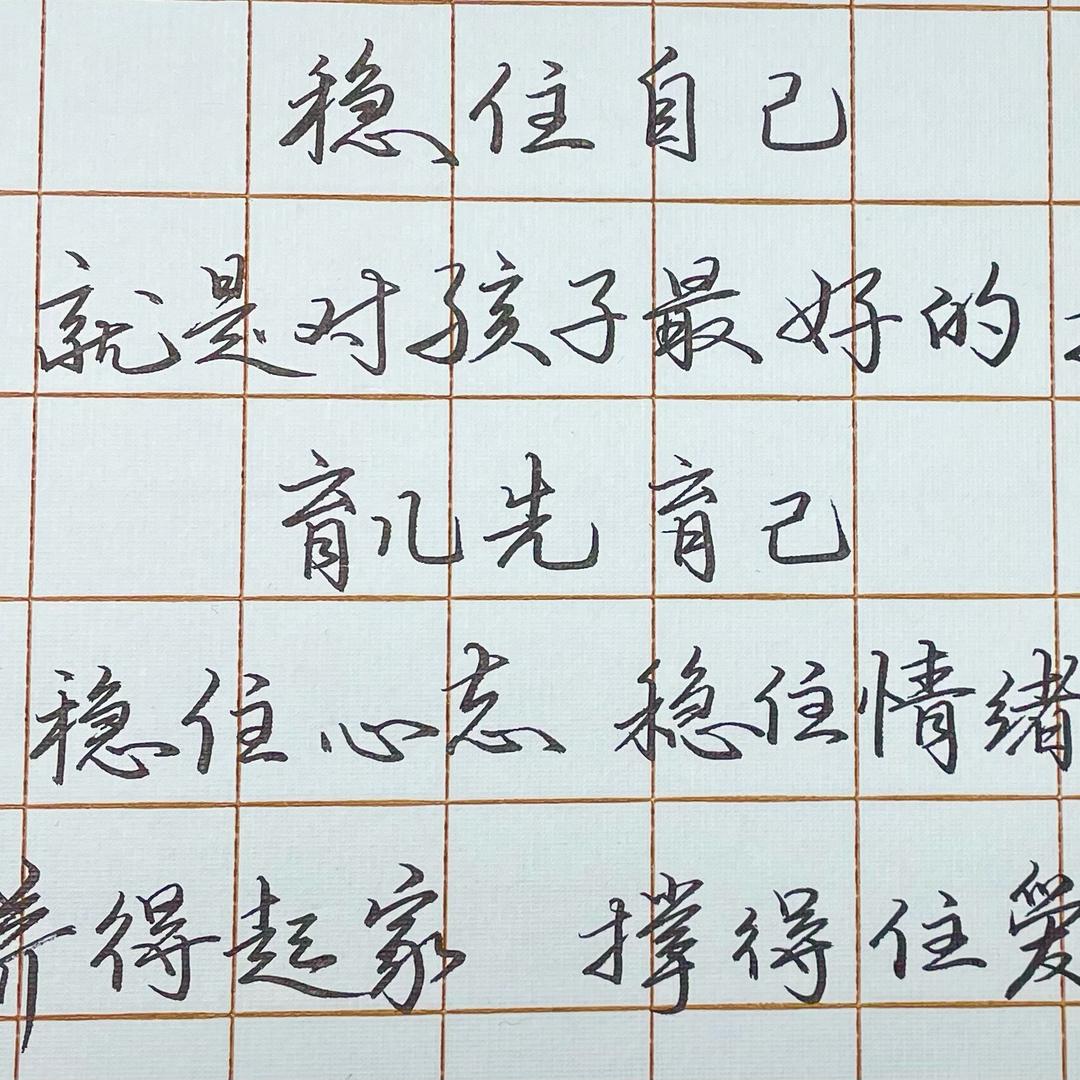 稳住自己
就是对孩子最好的
育儿先育己
稳住心志 稳住情绪
养得起家 撑得住爱